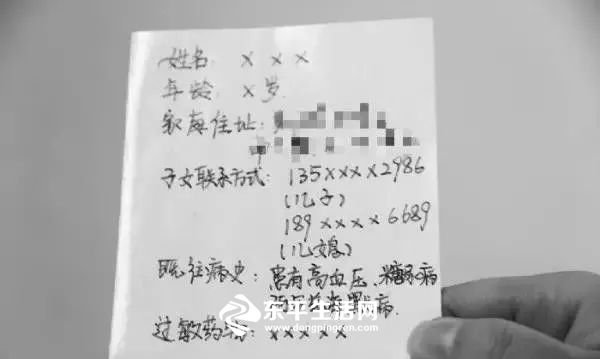 姓名: x x x
年龄: x岁.
家庭住址:
子女联系方式: 135xxxx2986
(儿子)
189xxxx6689
(儿媳)
既往病史: 患有高血压、糖尿病
病.
过敏药物: xxxxx
东平生活网
www.dongpingren.com